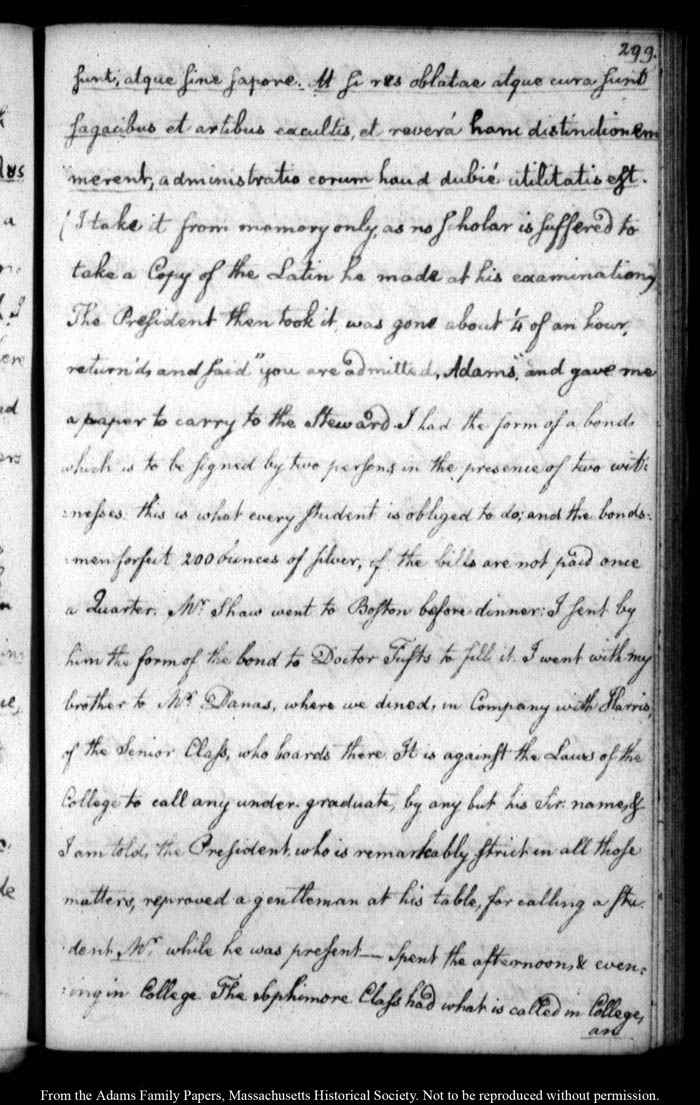 299.
sunt, atque sine sapore. At si res oblatae atque cura sunt
sagacibus et artibus excultis, et reverá hanc distinctionem
merent, administratio eorum haud dubié utilitatis est.
(I take it from memory only, as no scholar is suffered to
take a Copy of the Latin he made at his examination)
The President then took it, was gone about ¼ of an hour,
return'd, and said "you are admitted, Adams," and gave me
a paper to carry to the Steward. I had the form of a bond,
which is to be signed by two persons in the presence of two wit:
:nesses. this is what every student is obliged to do; and the bonds:
:men forfeit 200 ounces of silver, if the bills are not paid once
a Quarter. Mr. Shaw went to Boston before dinner: I sent by
him the form of the bond to Doctor Tufts to fill it. I went with my
brother to Mr. Danas, where we dined, in Company with Harris,
of the Senior Class, who boards there. It is against the Laws of the
College to call any under-graduate, by any but his Sir-name, &
I am told, the President, who is remarkably strict in all those
matters, reproved a gentleman at his table, for calling a stu-
:dent Mr. while he was present— Spent the afternoon, & even:
:ing in College. The Sophimore Class had what is called in College,
an
From the Adams Family Papers, Massachusetts Historical Society. Not to be reproduced without permission.